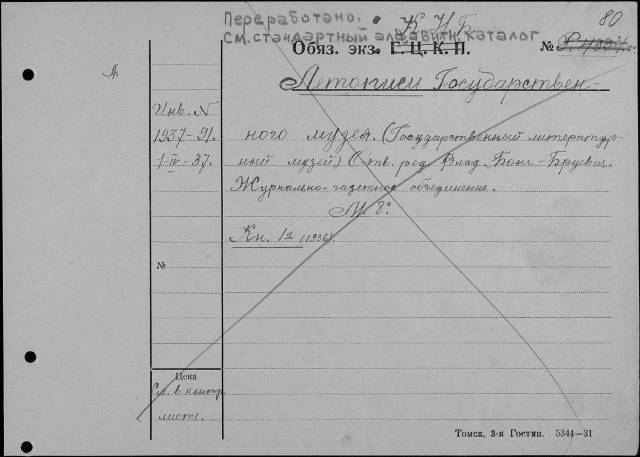 Переработано. К Н Б. 80
См. стандартный алфавитн. каталог
Обяз. экз. Г. Ц. К. П. №
Летописи Государствен-
Л.
Инв. N
1937-91.
1-IV-37.
ного музея. (Государственный литератур-
ный музей) Отв. ред. Влад. Бонч-Бруевич.
Журнально-газетное объединение.
М. 8°.
Кн. 1я (1936).
№
Цена
См. в контр.
листе.
Томск, 3-я Гостип. 5344—31